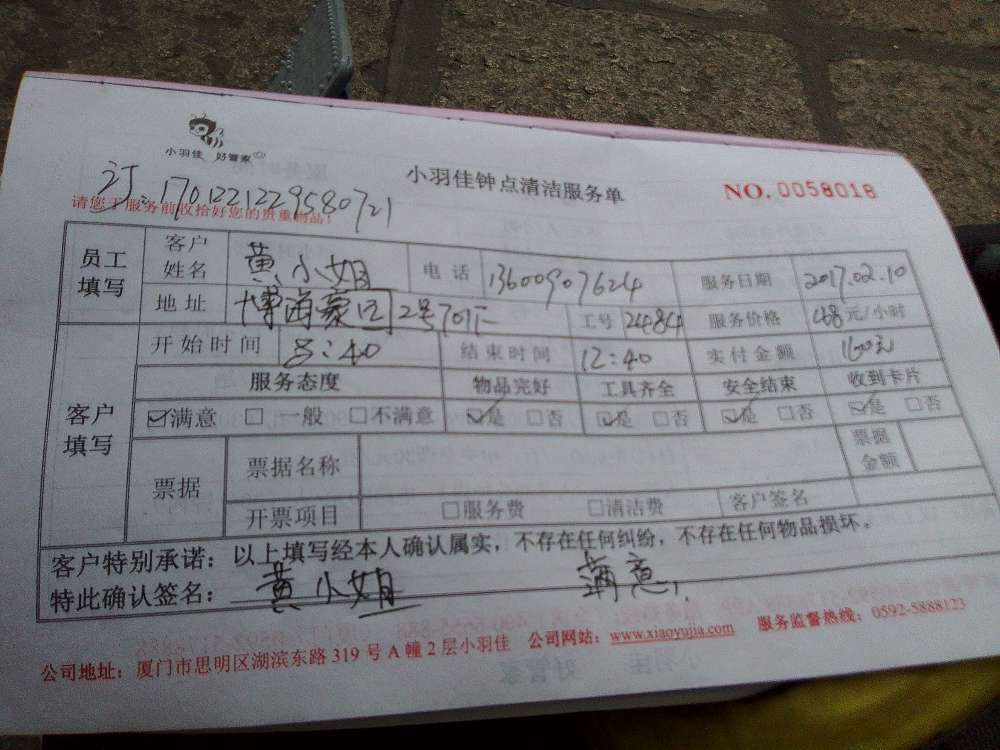 小羽佳 好管家
小羽佳钟点清洁服务单
NO. 0058018
订:1701221229580721
请您于服务前收拾好您的贵重物品!
员工填写 客户姓名 黄小姐 电话 13600907624 服务日期 2017.02.10
地址 博海豪园2号701 工号 2484 服务价格 元/小时
开始时间 8:40 结束时间 12:40 实付金额 160元
客户填写 服务态度 物品完好 工具齐全 安全结束 收到卡片
☑满意 □一般 □不满意 ☑是 □否 ☑是 □否 ☑是 □否 ☑是 □否
票据 票据名称 票据金额
开票项目 □服务费 □清洁费 客户签名
客户特别承诺:以上填写经本人确认属实,不存在任何纠纷,不存在任何物品损坏。
特此确认签名: 黄小姐 满意
公司地址:厦门市思明区湖滨东路 319 号 A 幢 2 层小羽佳 公司网站:www.xiaoyujia.com 服务监督热线:0592-5888123